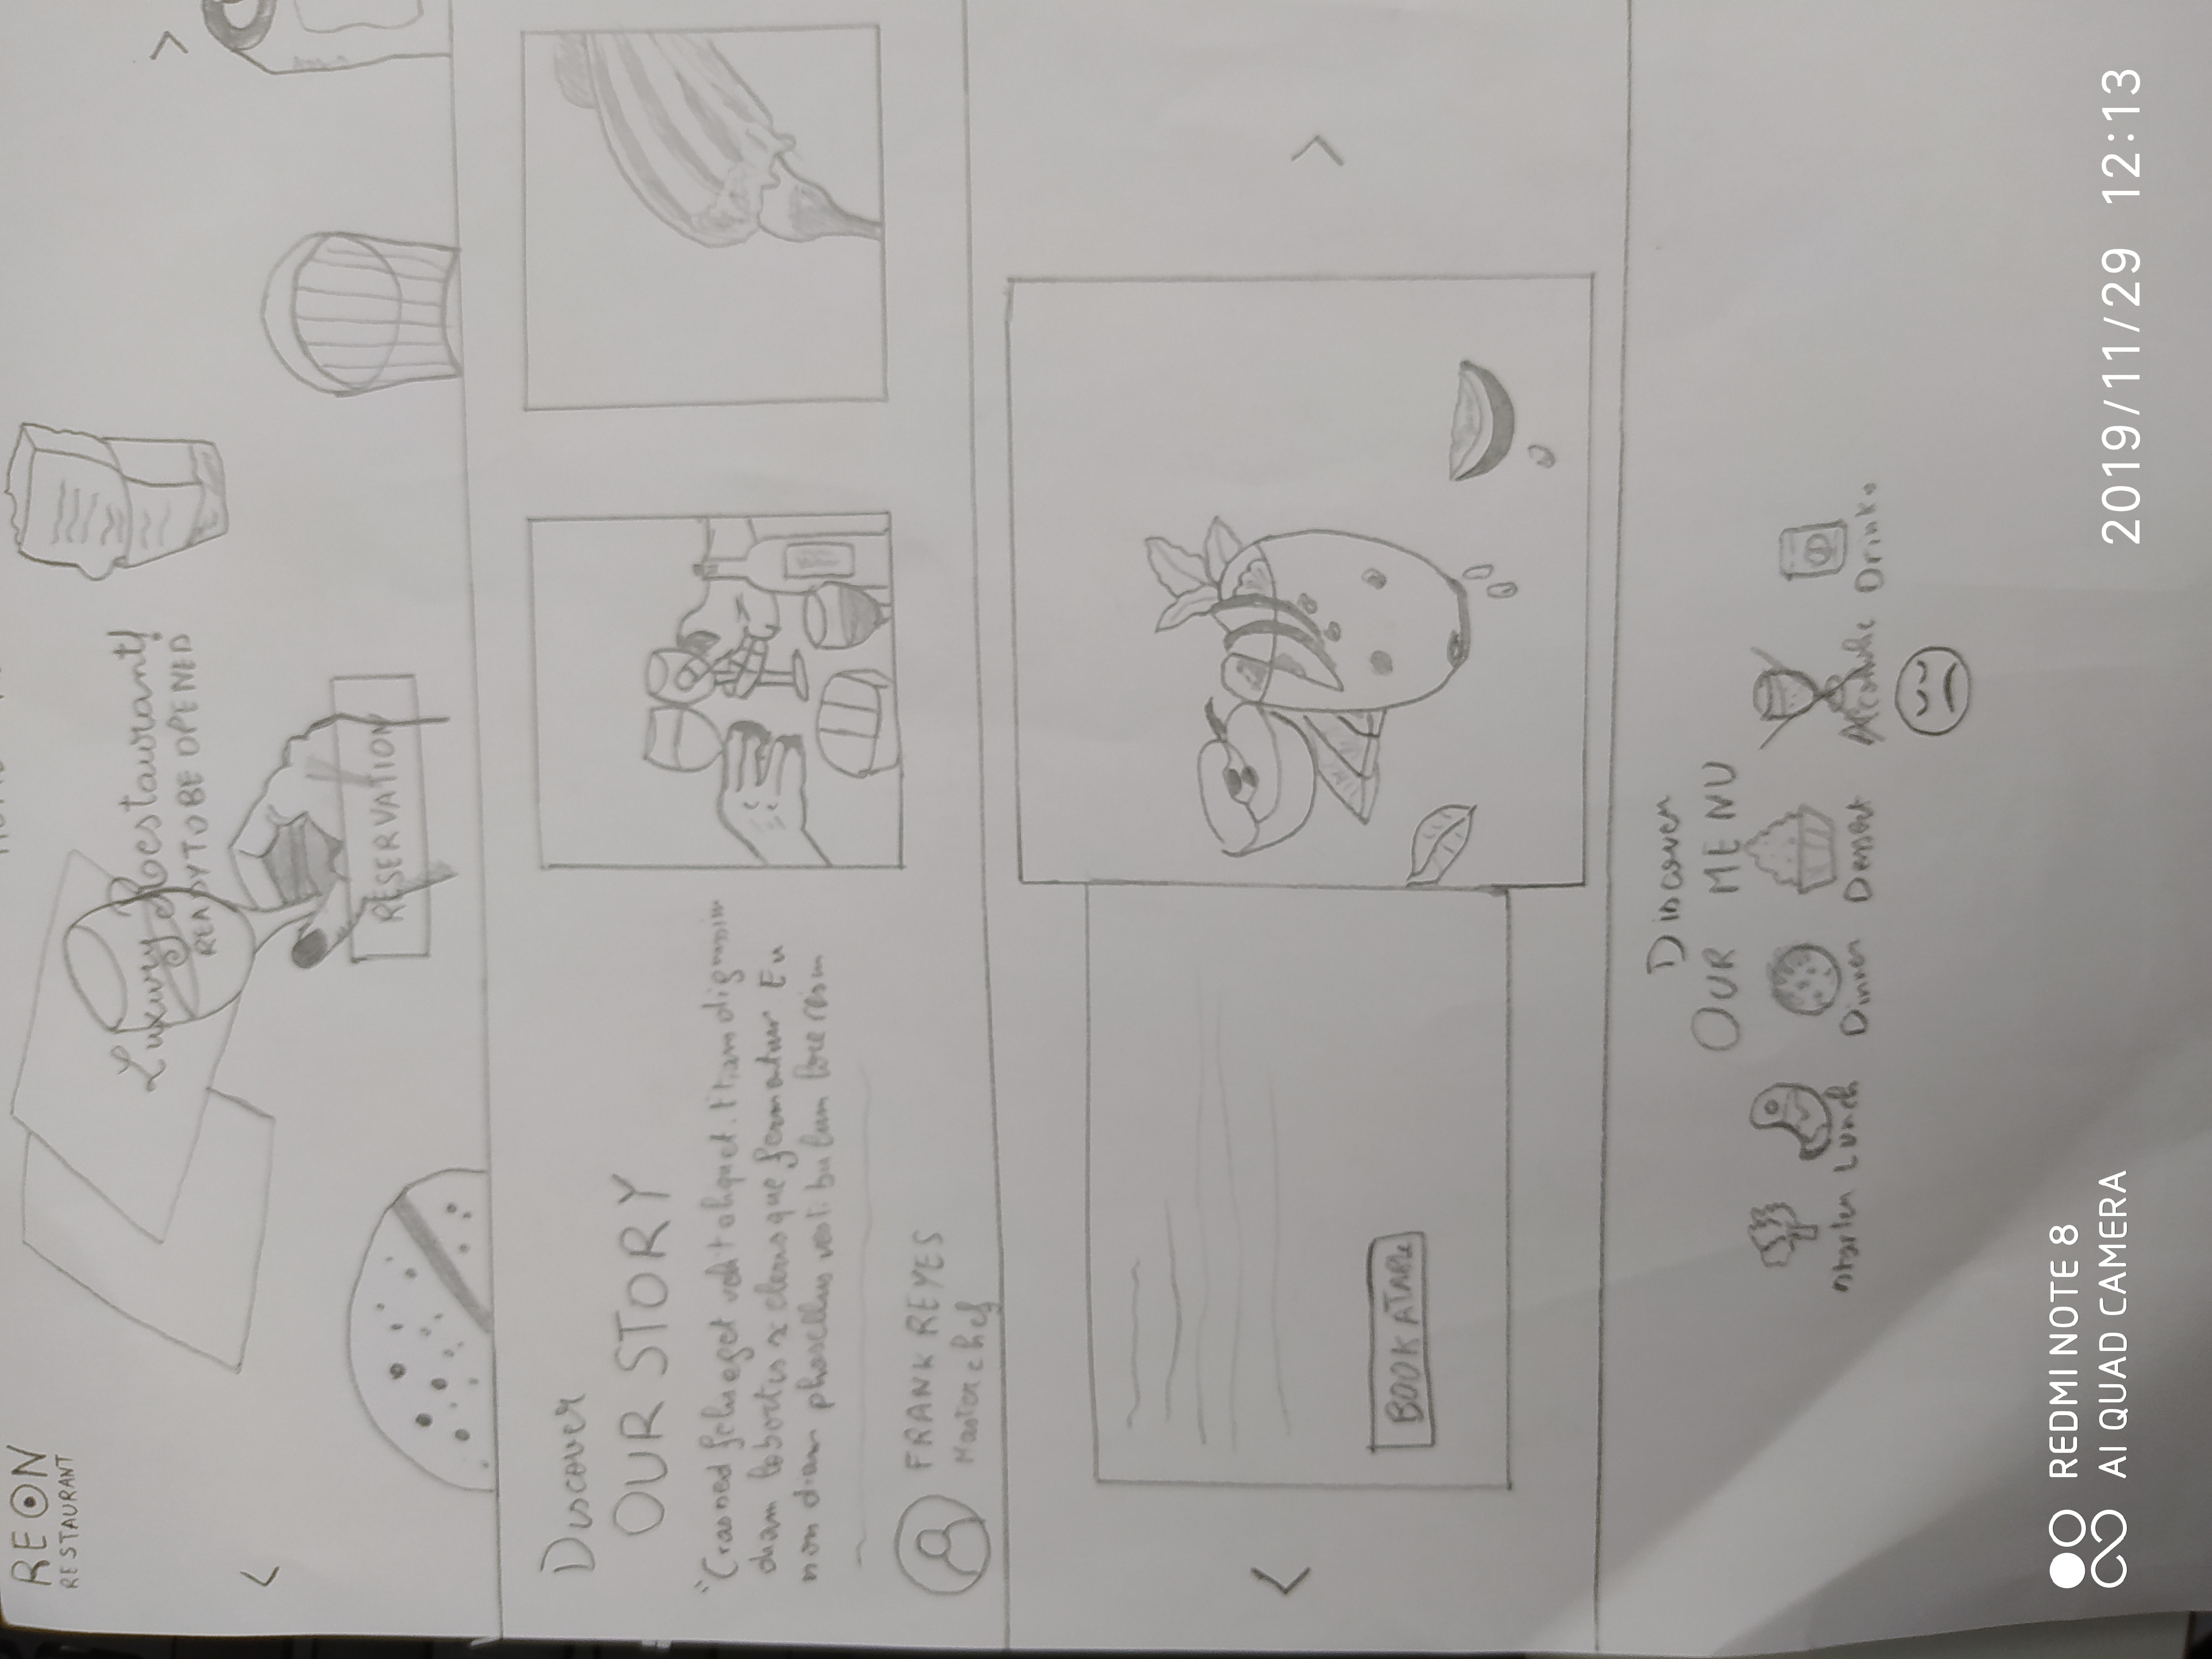 REON
RESTAURANT
HOME
Luxury Restaurant!
READY TO BE OPENED
<
>
RESERVATION
Discover
OUR STORY
"Cras sed felis eget velit aliquet. Etiam dignissim
diam lobortis scelerisque fermentum Eu
non diam phasellus vestibulum lorem
FRANK REYES
Master chef
BOOK A TABLE
<
>
Discover
OUR MENU
Starter Lunch Dinner Dessert Alcoholic Drinks
REDMI NOTE 8
AI QUAD CAMERA
2019/11/29 12:13